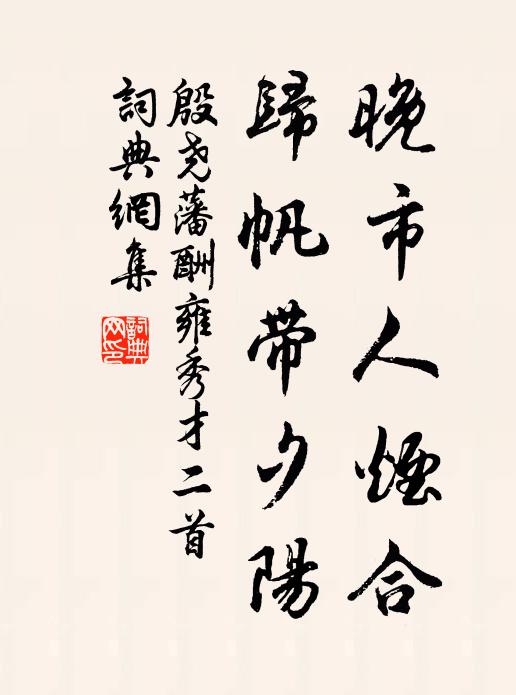 晚市人煙合
歸帆帶夕陽
殷尧藩酬雍秀才二首
詞典網集
詞典网印